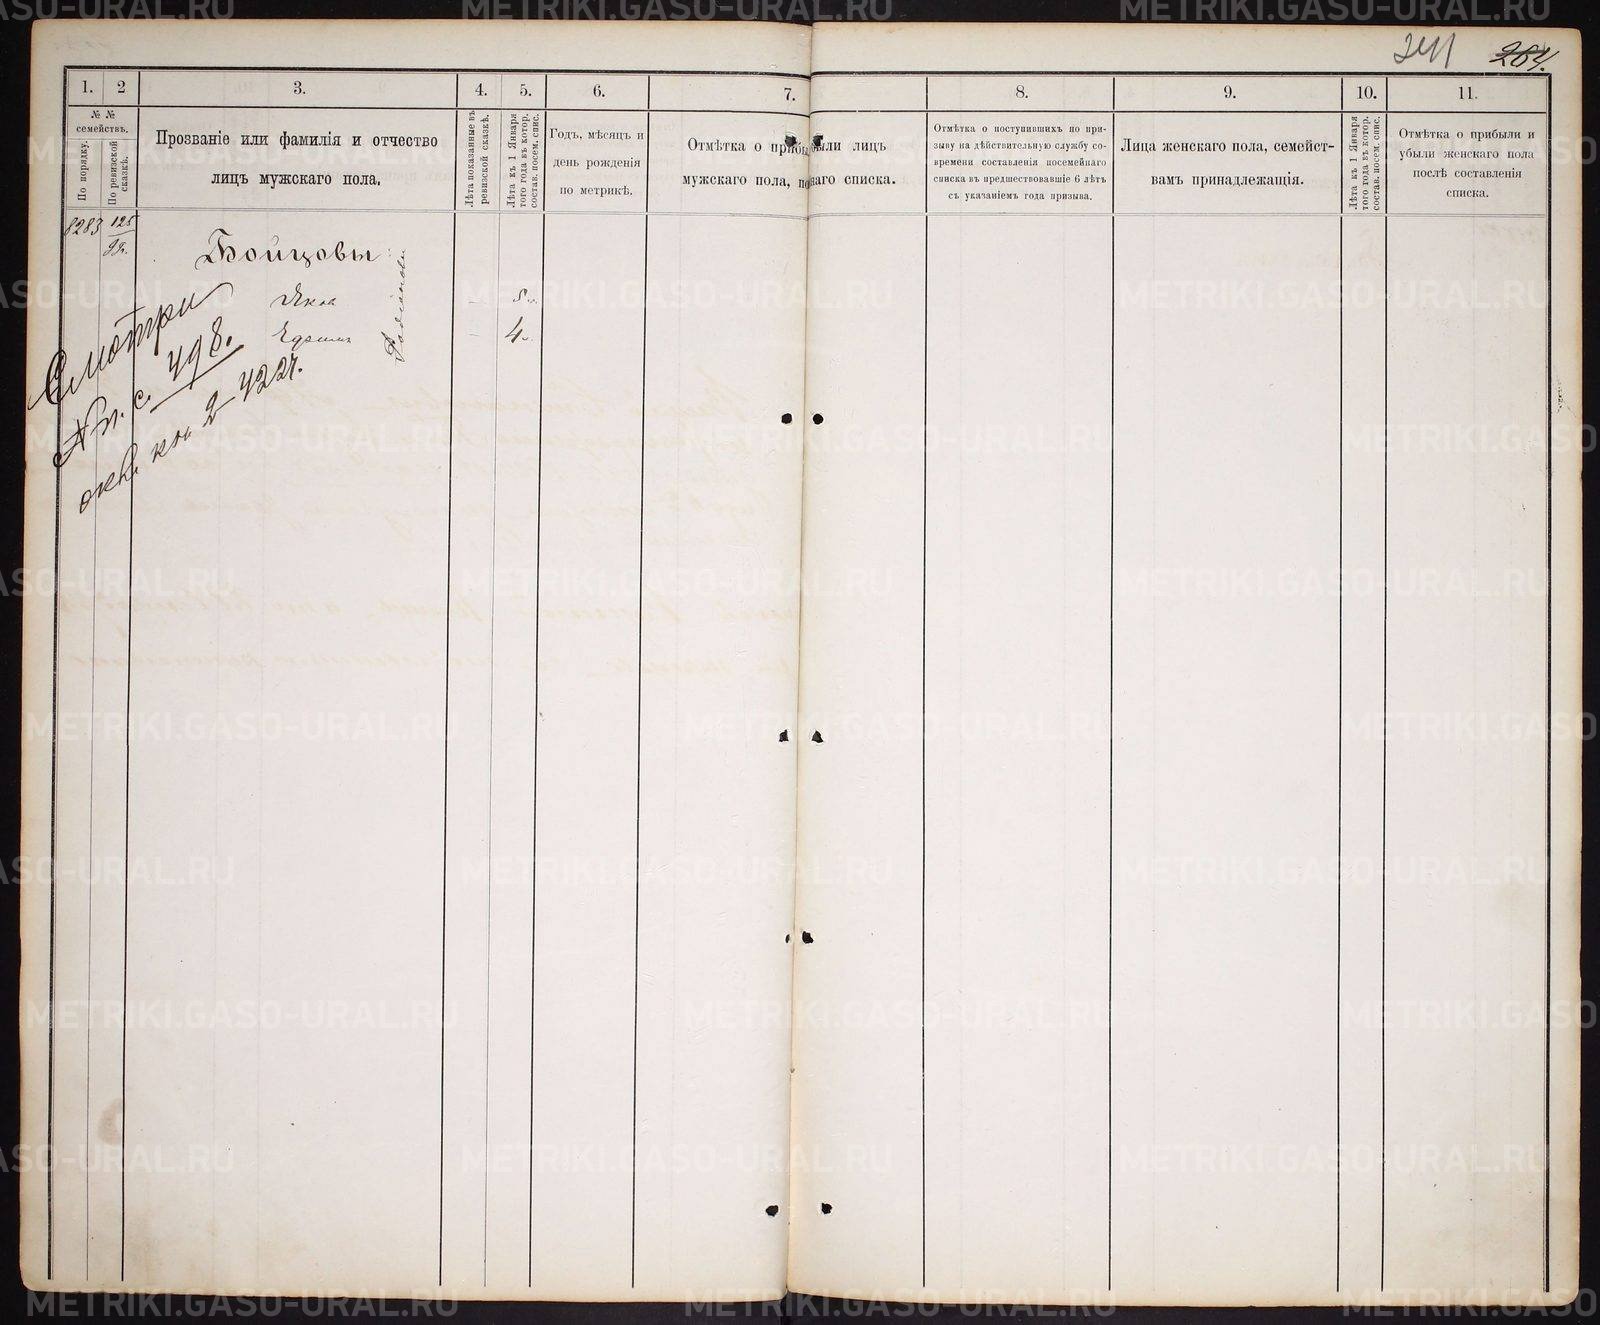 241 264.
1. 2 3. 4. 5. 6. 7. 8. 9. 10. 11.
№ №
семействъ.
По порядку.
По ревизской сказкѣ.
Прозваніе или фамилія и отчество
лицъ мужскаго пола.
Лѣта показанные въ
ревизской сказкѣ.
Лѣта къ 1 Января
того года въ котор.
состав. посем. спис.
Годъ, мѣсяцъ и
день рожденія
по метрикѣ.
Отмѣтка о прибыли лицъ
мужскаго пола, наго списка.
Отмѣтка о поступившихъ по при-
зыву на дѣйствительную службу со-
времени составленія посемейнаго
списка въ предшествовавшіе 6 лѣтъ
съ указаніемъ года призыва.
Лица женскаго пола, семейст-
вамъ принадлежащія.
Лѣта къ 1 Января
того года въ котор.
состав. посем. спис.
Отмѣтка о прибыли и
убыли женскаго пола
послѣ составленія
списка.
8283 125
Бойцовы
Яков 8
Ефрим 4
Смотри
№ п. с. 498.
кн. 2 4227.
METRIKI.GASO-URAL.RU